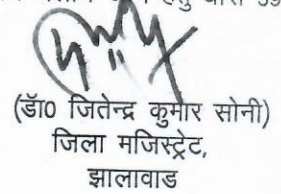 हेतु धारा 39
(डॉ0 जितेन्द्र कुमार सोनी)
जिला मजिस्ट्रेट,
झालावाड